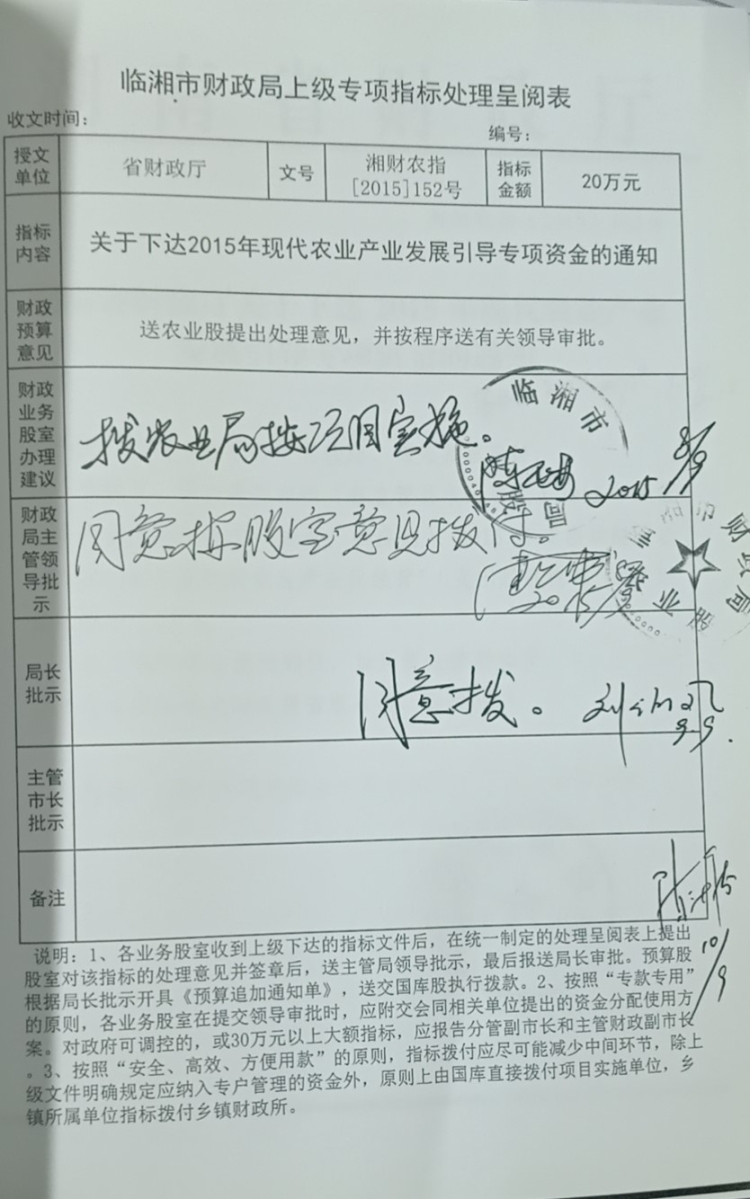 临湘市财政局上级专项指标处理呈阅表
收文时间：
编号：
授文
单位
省财政厅
文号
湘财农指
[2015]152号
指标
金额
20万元
指标
内容
关于下达2015年现代农业产业发展引导专项资金的通知
财政
预算
意见
送农业股提出处理意见，并按程序送有关领导审批。
财政
业务
股室
办理
建议
拨农业局按项目实施。
2015 8/9
临湘市
局
财政
局主
管领
导批
示
同意按股室意见拨付。
2015
财政局
农业股
局长
批示
同意拨。
9.9.
主管
市长
批示
备注
10/9
说明：1、各业务股室收到上级下达的指标文件后，在统一制定的处理呈阅表上提出
股室对该指标的处理意见并签章后，送主管局领导批示，最后报送局长审批。预算股
根据局长批示开具《预算追加通知单》，送交国库股执行拨款。2、按照“专款专用”
的原则，各业务股室在提交领导审批时，应附交会同相关单位提出的资金分配使用方
案。对政府可调控的，或30万元以上大额指标，应报告分管副市长和主管财政副市长
。3、按照“安全、高效、方便用款”的原则，指标拨付应尽可能减少中间环节，除上
级文件明确规定应纳入专户管理的资金外，原则上由国库直接拨付项目实施单位，乡
镇所属单位指标拨付乡镇财政所。